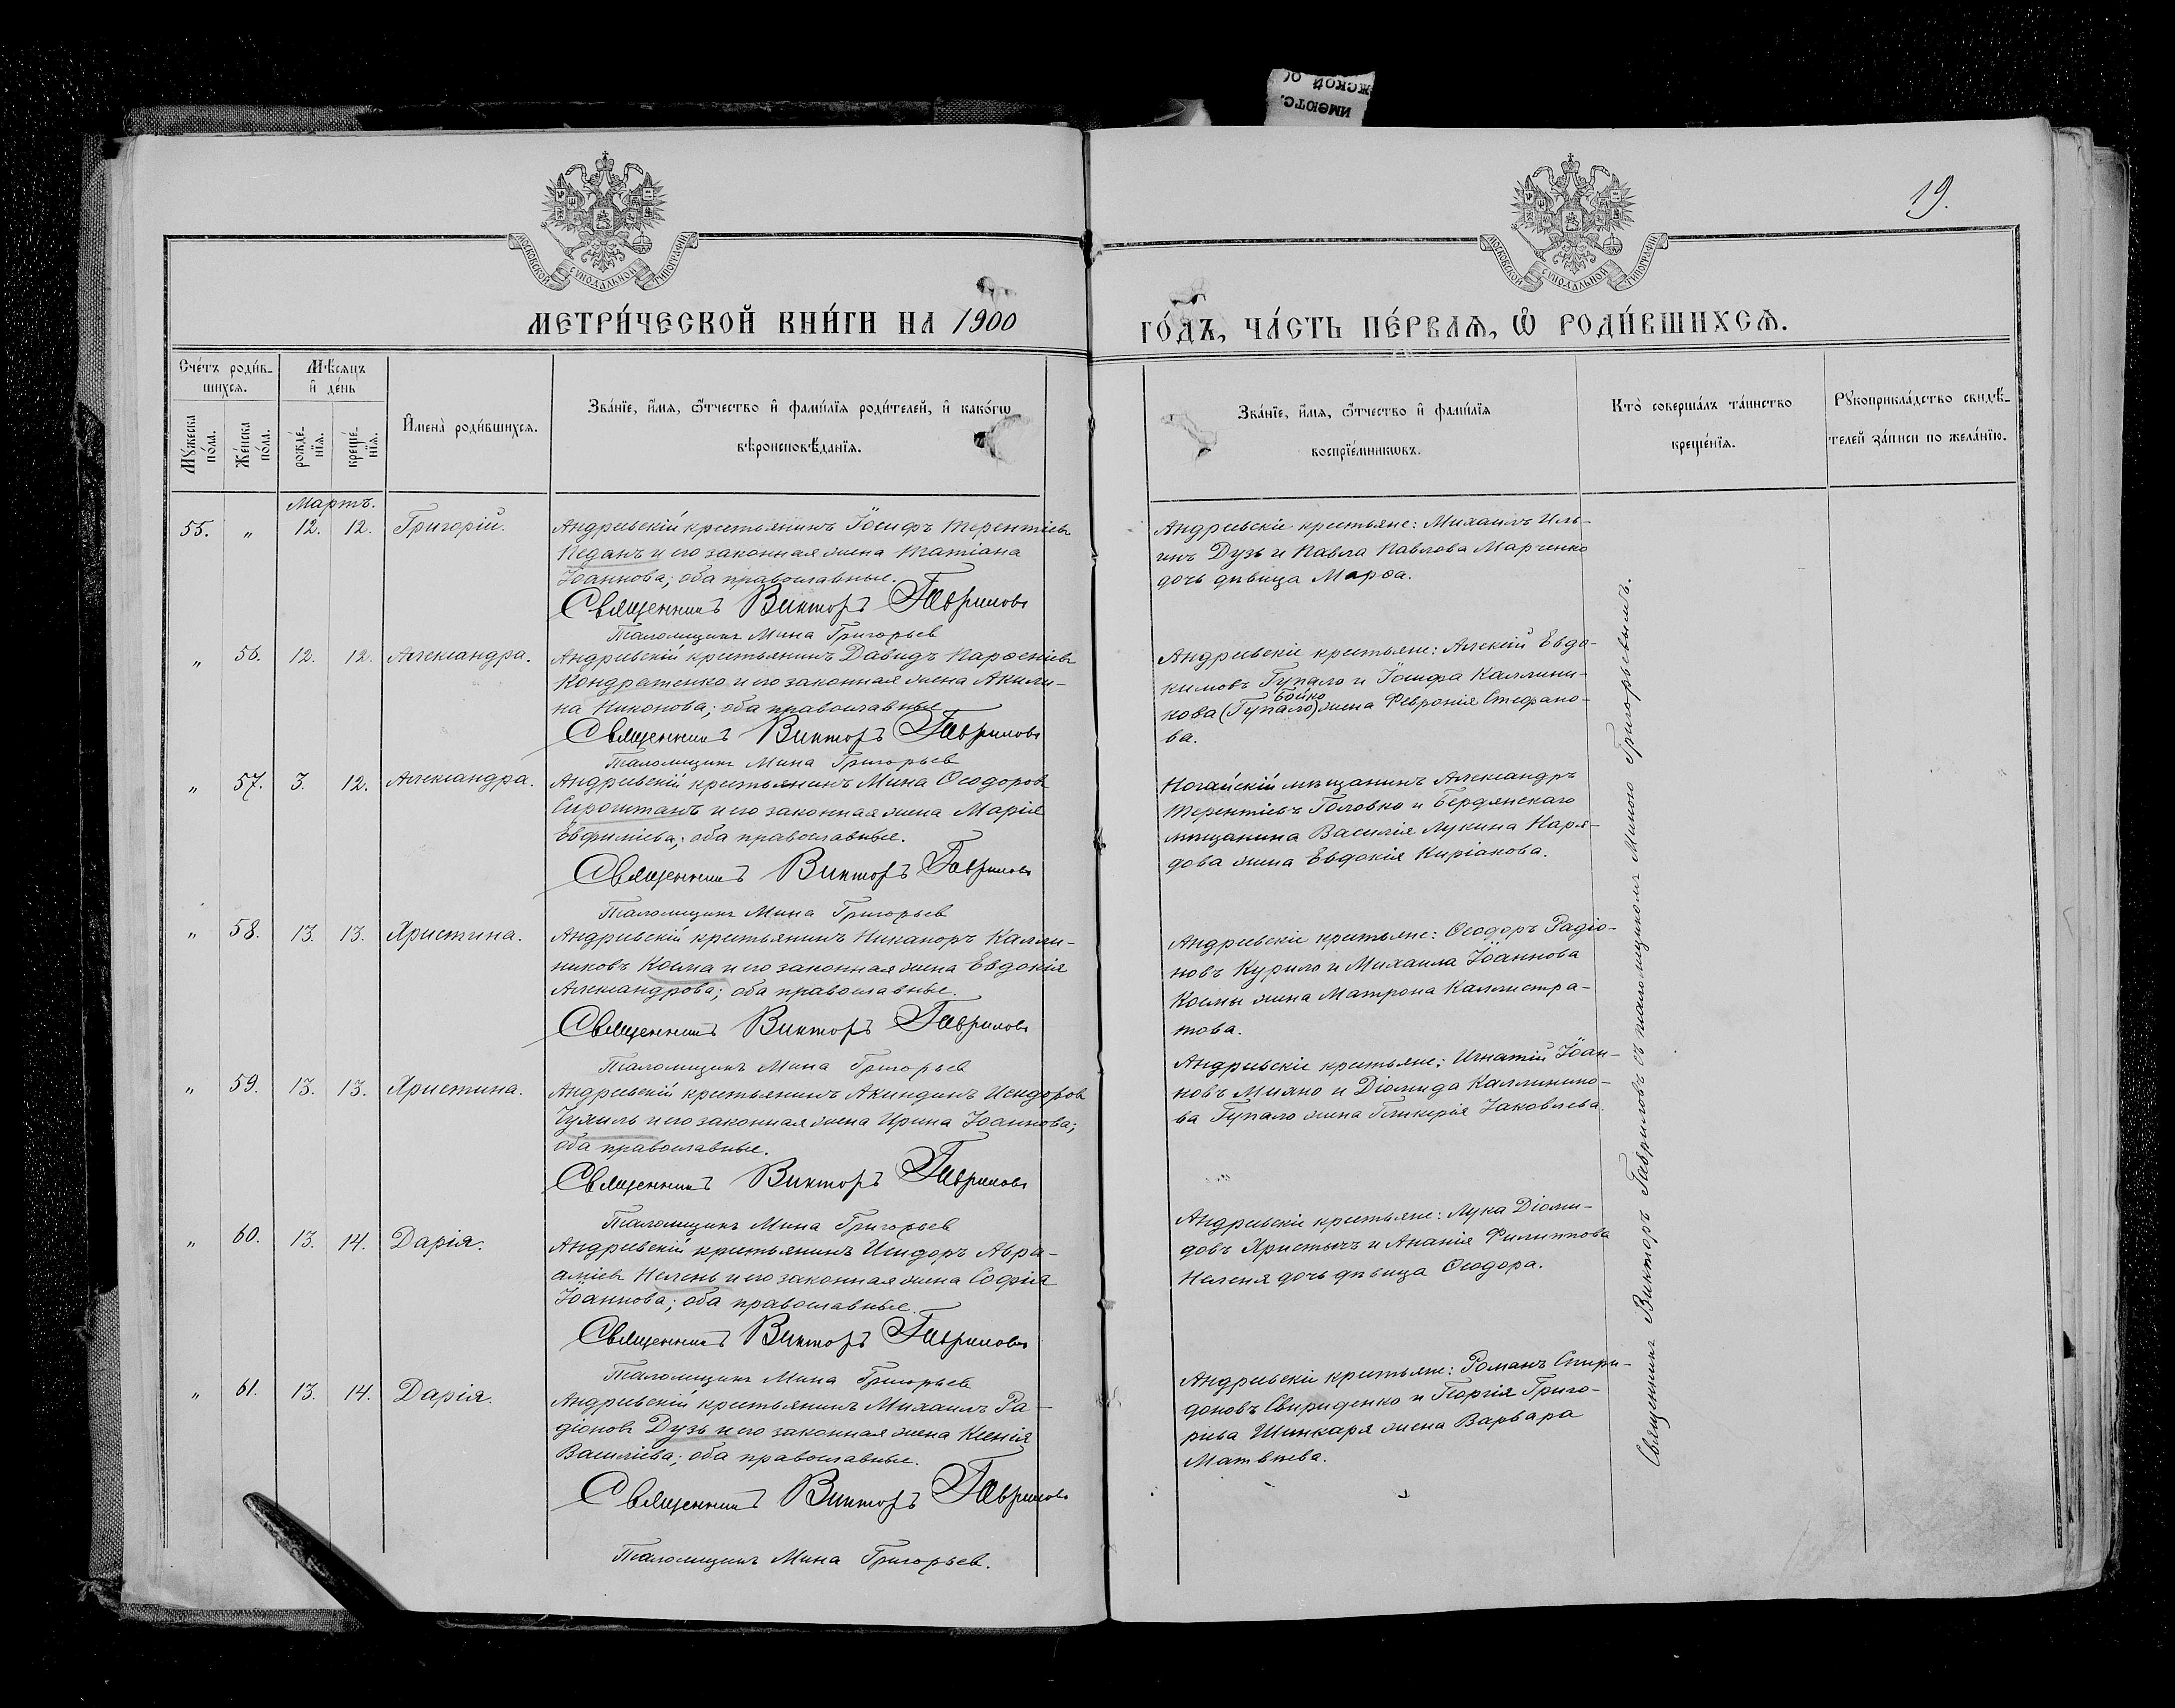 ИМЕЮТС.
ЖСКОЙ
19.
МОСКОВСКОЙ СѴНОДАЛЬНОЙ ТИПОГРАФІИ
МОСКОВСКОЙ СѴНОДАЛЬНОЙ ТИПОГРАФІИ
МЕТРИ́ЧЕСКОЙ КНИ́ГИ НА 1900
ГО́ДЪ, ЧА́СТЬ ПЕ́РВАѦ, Ѽ РОДИ́ВШИХСѦ.
Сче́тъ роди́в-
шихсѧ.
Мꙋ́жеска по́ла.
Же́нска по́ла.
Мѣ́сѧцъ
и҆ де́нь
рожде́-
нїѧ.
креще́-
нїѧ.
И҆мена̀ роди́вшихсѧ.
Зва́нїе, и҆́мѧ, ѻ҆́тчество и҆ фамѝлїѧ роди́телей, и҆ како́гѡ
вѣроисповѣ́данїѧ.
Зва́нїе, и҆́мѧ, ѻ҆́тчество и҆ фамѝлїѧ
воспрїе́мникѡвъ.
Кто̀ соверша́лъ та́инство
креще́нїѧ.
Рꙋкоприкла́дство свидѣ́-
телей за́писи по жела́нїю.
Мартъ.
55. „ 12. 12. Григорій.
Андреевскій крестьянинъ Іосифъ Терентіевъ
Педанъ и его законная жена Татіана
Іоаннова; оба православные.
Священникъ Викторъ Гавриловъ
Псаломщикъ Мина Григорьев
Андреевскіе крестьяне: Михаилъ Иль-
инъ Дузь и Павла Павлова Марченко
дочь дѣвица Марѳа.
„ 56. 12. 12. Александра.
Андреевскій крестьянинъ Давидъ Парѳеніевъ
Кондратенко и его законная жена Акили-
на Никонова; оба православные
Священникъ Викторъ Гавриловъ
Псаломщикъ Мина Григорьев
Андреевскіе крестьяне: Алексій Евдо-
кимовъ Гупало и Іосифа Каллини-
Бойко
кова (Гупало) жена Февронія Стефано-
ва.
„ 57. 3. 12. Александра.
Андреевскій крестьянинъ Мина Ѳеодоровъ
Сироштанъ и его законная жена Марія
Евфиміева; оба православные.
Священникъ Викторъ Гавриловъ
Псаломщикъ Мина Григорьев
Ногайскій мѣщанинъ Александръ
Терентіевъ Головко и Бердянскаго
мѣщанина Василія Лукина Наря-
дова жена Евдокія Киріакова.
„ 58. 13. 13. Христина.
Андреевскій крестьянинъ Никаноръ Калли-
никовъ Косма и его законная жена Евдокія
Александрова; оба православные.
Священникъ Викторъ Гавриловъ
Псаломщикъ Мина Григорьев
Андреевскіе крестьяне: Ѳеодоръ Радіо-
новъ Курило и Михаила Іоаннова
Космы жена Матрона Каллистра-
това.
„ 59. 13. 13. Христина.
Андреевскій крестьянинъ Акиндинъ Исидоровъ
Чухиль и его законная жена Ирина Іоаннова;
оба православные.
Священникъ Викторъ Гавриловъ
Псаломщикъ Мина Григорьев
Андреевскіе крестьяне: Игнатій Іоан-
новъ Михно и Діомида Каллинико-
ва Гупало жена Гликерія Іаковлева.
„ 60. 13. 14. Дарія.
Андреевскій крестьянинъ Исидоръ Авра-
аміевъ Нелень и его законная жена Софія
Іоаннова; оба православные.
Священникъ Викторъ Гавриловъ
Псаломщикъ Мина Григорьев
Андреевскіе крестьяне: Лука Діоми-
довъ Христычъ и Ананія Филиппова
Неленя дочь дѣвица Ѳеодора.
„ 61. 13. 14. Дарія.
Андреевскій крестьянинъ Михаилъ Ра-
діоновъ Дузь и его законная жена Ксенія
Василіева; оба православные.
Священникъ Викторъ Гавриловъ
Псаломщикъ Мина Григорьев.
Андреевскіе крестьяне: Романъ Спири-
доновъ Свириденко и Георгія Григо-
рьева Шинкаря жена Варвара
Матвѣева.
Священникъ Викторъ Гавриловъ съ псаломщикомъ Миною Григорьевымъ.